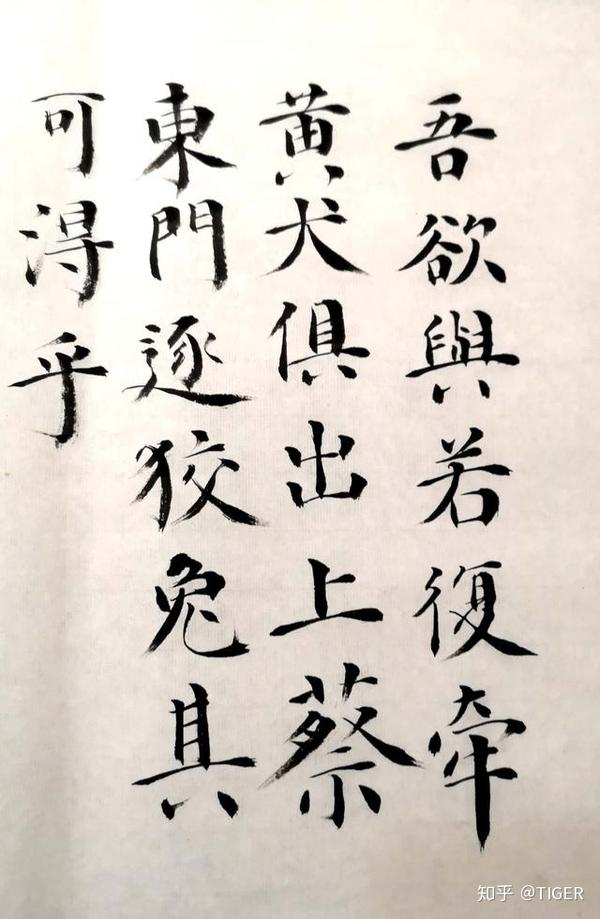 吾欲與若復牽
黄犬俱出上蔡
東門逐狡兔其
可得乎
知乎 @TIGER